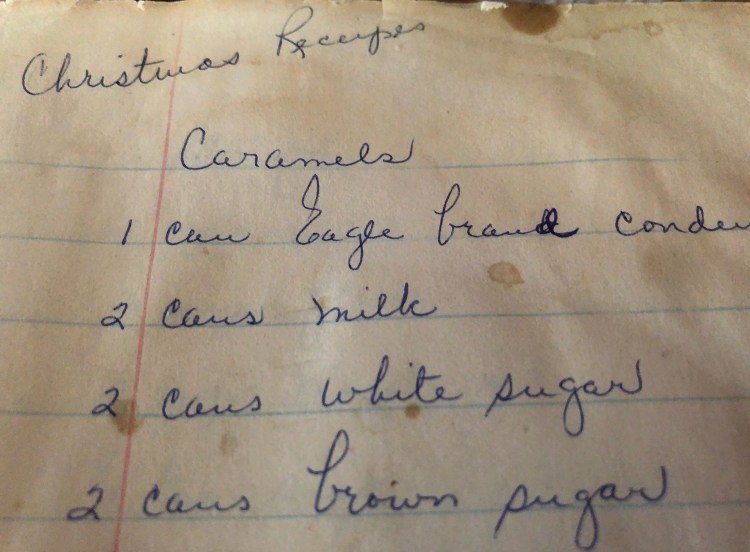 Christmas Receipes
Caramels
1 can Eagle brand conden
2 cans milk
2 cans white sugar
2 cans brown sugar